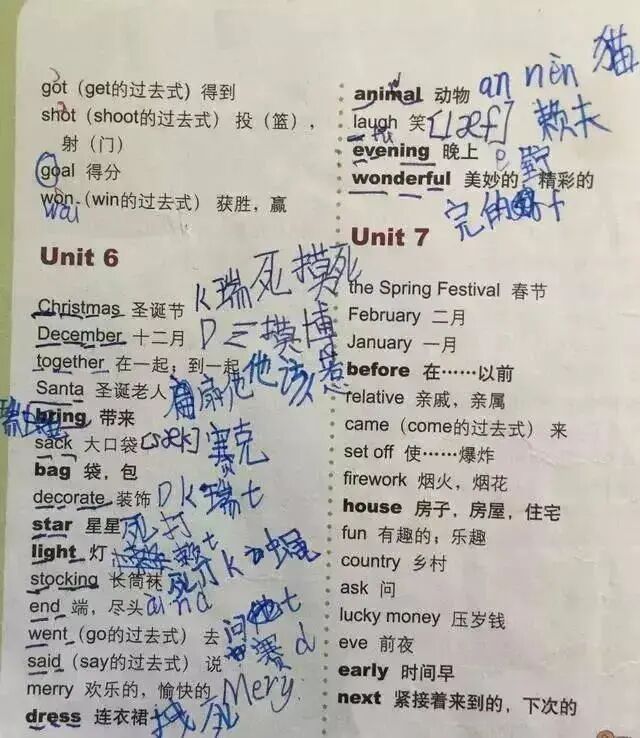 got (get的过去式) 得到
shot (shoot的过去式) 投（篮），
射（门）
goal 得分
won (win的过去式) 获胜，赢
wai
Unit 6
Christmas 圣诞节 k瑞死摸死
December 十二月 D三摸博
together 在一起；到一起 他该惹
Santa 圣诞老人 扇他
bring 带来
sack 大口袋 [sæk] 赛克
bag 袋，包
decorate 装饰 Dk瑞t
star 星星 死打
light 灯 赖t
stocking 长筒袜 死 k
end 端，尽头 aind
went (go的过去式) 去 问t
said (say的过去式) 说 赛d
merry 欢乐的，愉快的 Mery
dress 连衣裙
animal 动物 an nèn 猫
laugh 笑 [læf] 赖夫
evening 晚上 e
wonderful 美妙的，精彩的
完的
Unit 7
the Spring Festival 春节
February 二月
January 一月
before 在……以前
relative 亲戚，亲属
came (come的过去式) 来
set off 使……爆炸
firework 烟火，烟花
house 房子，房屋，住宅
fun 有趣的；乐趣
country 乡村
ask 问
lucky money 压岁钱
eve 前夜
early 时间早
next 紧接着来到的，下次的